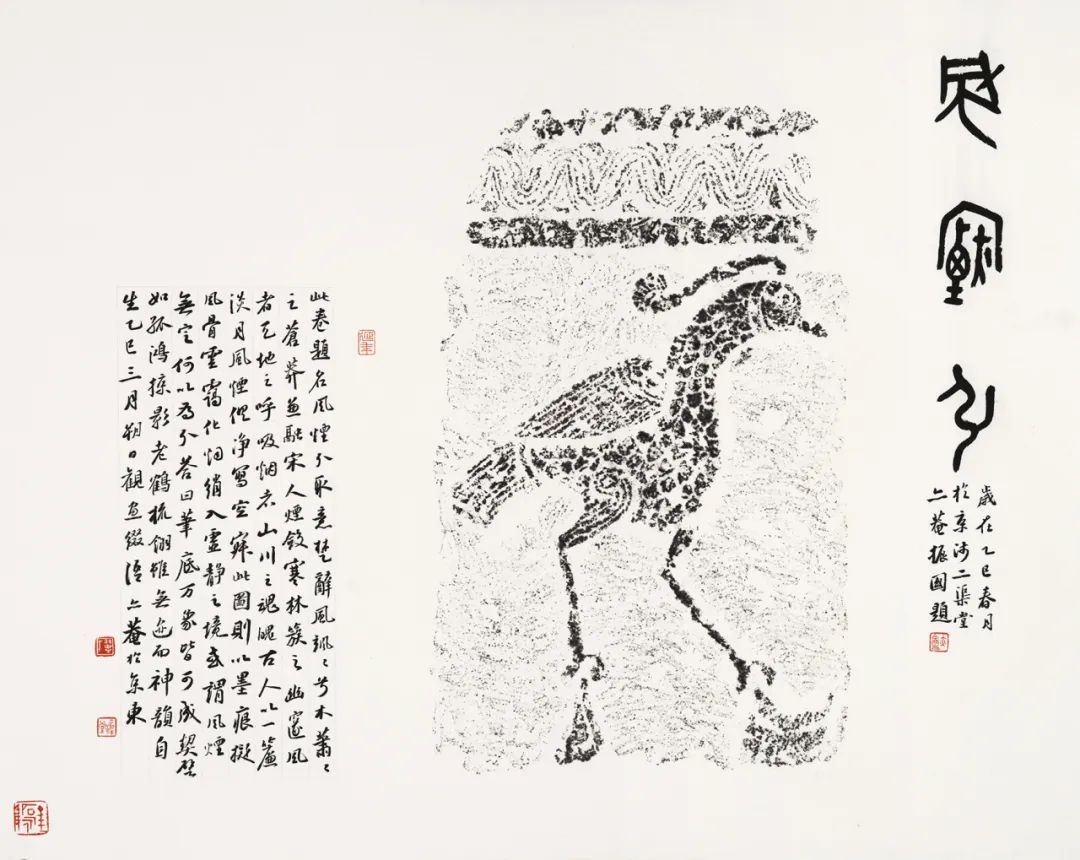 風煙兮
歲在乙巳春月
於京涉二渠堂
上菴振國題
此卷題名風煙兮取意楚辭風颯〻兮木蕭〻
之蒼莽兼融宋人煙斂寒林簇之幽邃風
者天地之呼吸烟者山川之魂魄古人以一簾
淡月風煙俱淨寫空寂此圖則以墨痕擬
風骨雲靄化烟綃入靈靜之境或謂風煙
無定何以為兮答曰筆底万象皆可成契譬
如孤鴻掠影老鶴梳翎雖無迹而神韻自
生乙巳三月朔日觀畫綴語上菴於京東